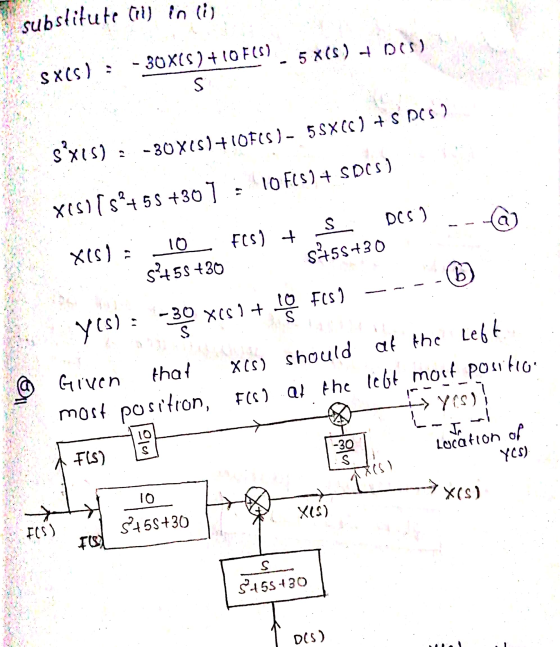 substitute (ii) in (i)
SX(s) = -30X(s)+10F(s) / S - 5X(s) + D(s)
S²X(s) = -30X(s)+10F(s) - 5SX(s) + S D(s)
X(s) [S²+5S+30] = 10F(s) + SD(s)
X(s) = 10 / S²+5S+30 F(s) + S / S²+5S+30 D(s) --- (a)
Y(s) = -30/S X(s) + 10/S F(s) ---- (b)
(a) Given that X(s) should at the left
most position, F(s) at the left most positio.
10/S
Y(s)
F(s)
-30/S
Location of
Y(s)
X(s)
F(s)
F(s)
10 / S²+5S+30
X(s)
X(s)
S / S²+5S+30
D(s)